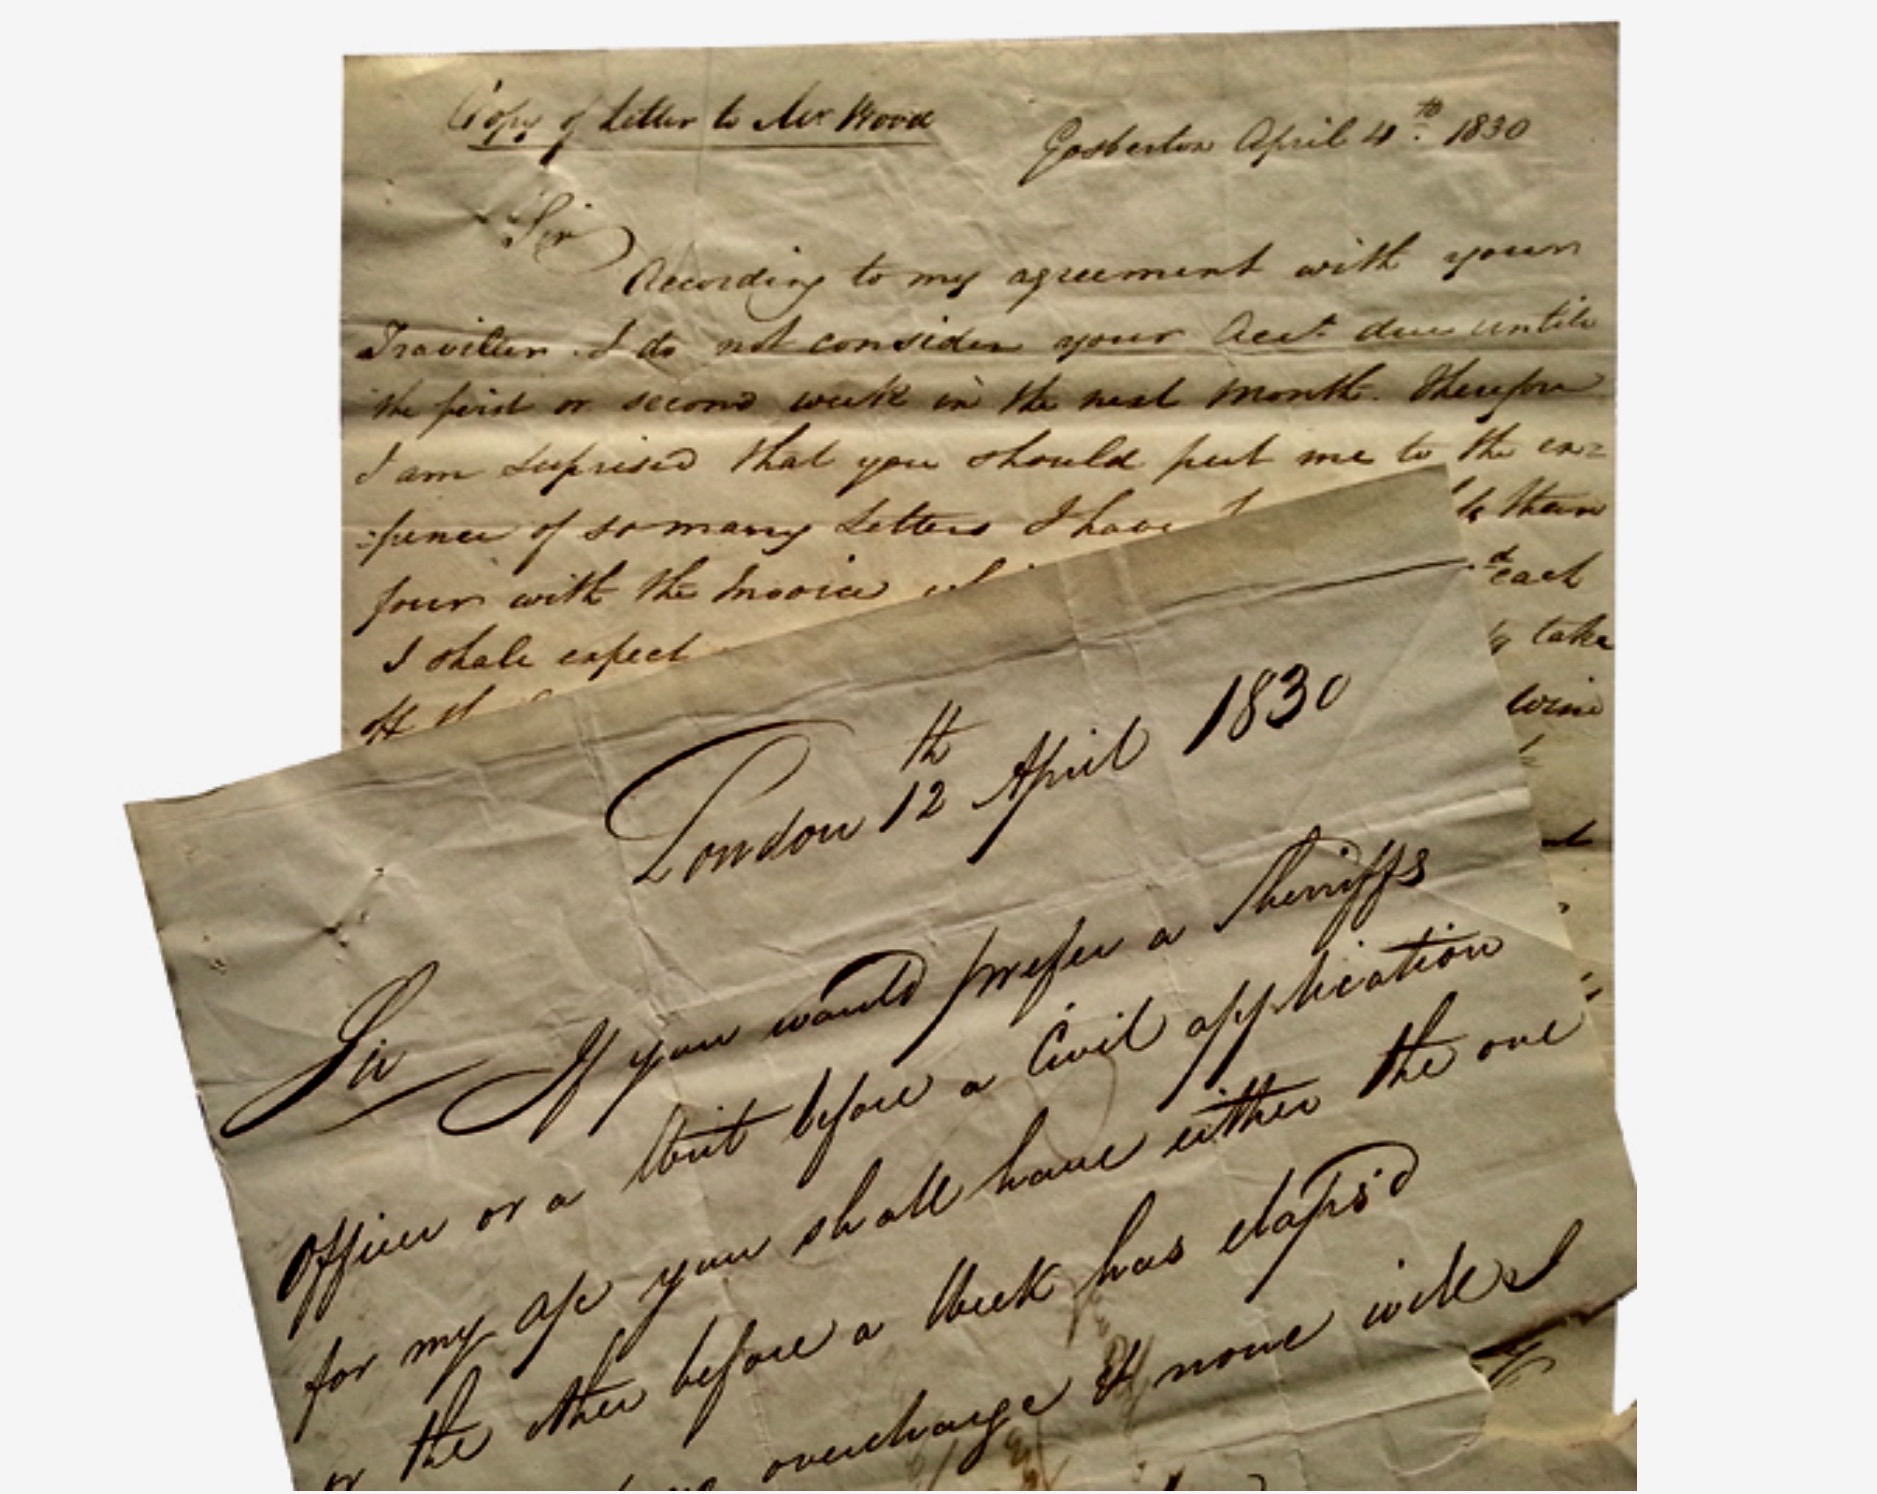 Copy of Letter to Mr Wood
Gosberton April 4th. 1830
Sir
According to my agreement with your
Traviller I do not consider your Acct. due until
the first or second week in the next Month. Therefore
I am suprised that you should put me to the ex=
=pence of so many Letters I have
them
four with the Invoice
each
I shall expect
take
wine
London 12th April 1830
Sir If you would prefer a Sherriffs
Officer or a Writ before a Civil application
for my a/c you shall have either the one
or the other before a Week has elaps'd
overcharge & none will I